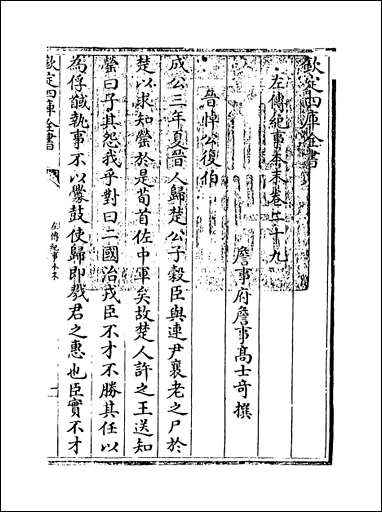 欽定四庫全書
左傳紀事本末卷二十九
詹事府詹事高士奇撰
晉悼公復伯
成公三年夏晉人歸楚公子穀臣與連尹襄老之尸於
楚以求知罃於是荀首佐中軍矣故楚人許之王送知
罃曰子其怨我乎對曰二國治戎臣不才不勝其任以
為俘馘執事不以釁鼓使歸即戮君之惠也臣實不才
欽定四庫全書
左傳紀事本末
一